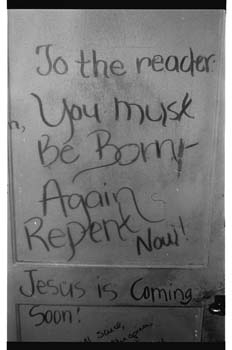 To the reader:
You must
Be Born
Again
Repent Now!
Jesus is Coming
Soon!